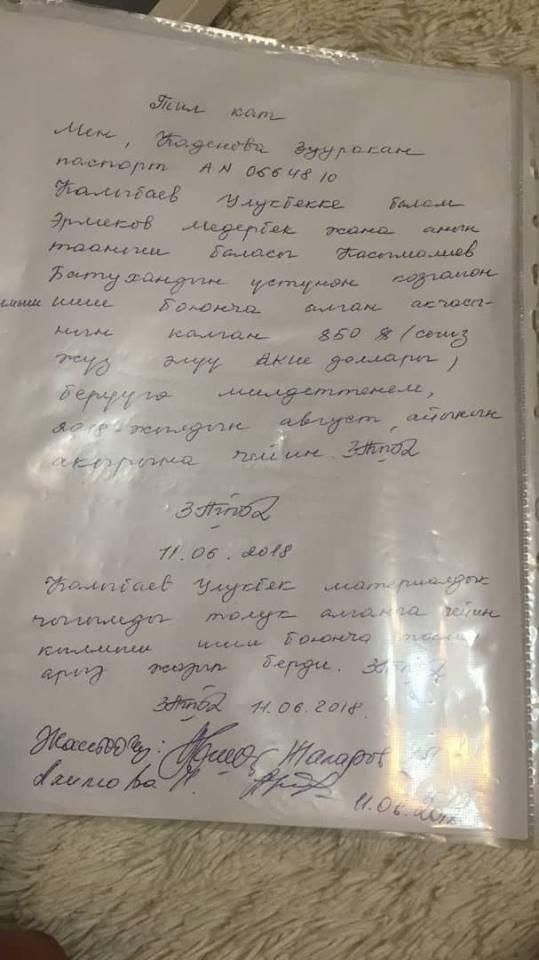 Тил кат
Мен, Каденова Зууракан
паспорт AN 0664810
Калыбаев Улукбекке балам
Эрмеков Медербек жана анын
тааныш баласы Касымалиев
Батухандын устунон козголгон
кылмыш иши боюнча алган акчасы-
нын калган 850 $ (сегиз
жуз элуу Акш доллары)
берууго милдеттенем,
2018-жылдын август, айынын
акырына чейин.
11.06.2018
Калыбаев Улукбек материалдык
чыгымды толук алганга чейин
кылмыш иши боюнча
арыз жазып берди.
11.06.2018.
11.06.2018